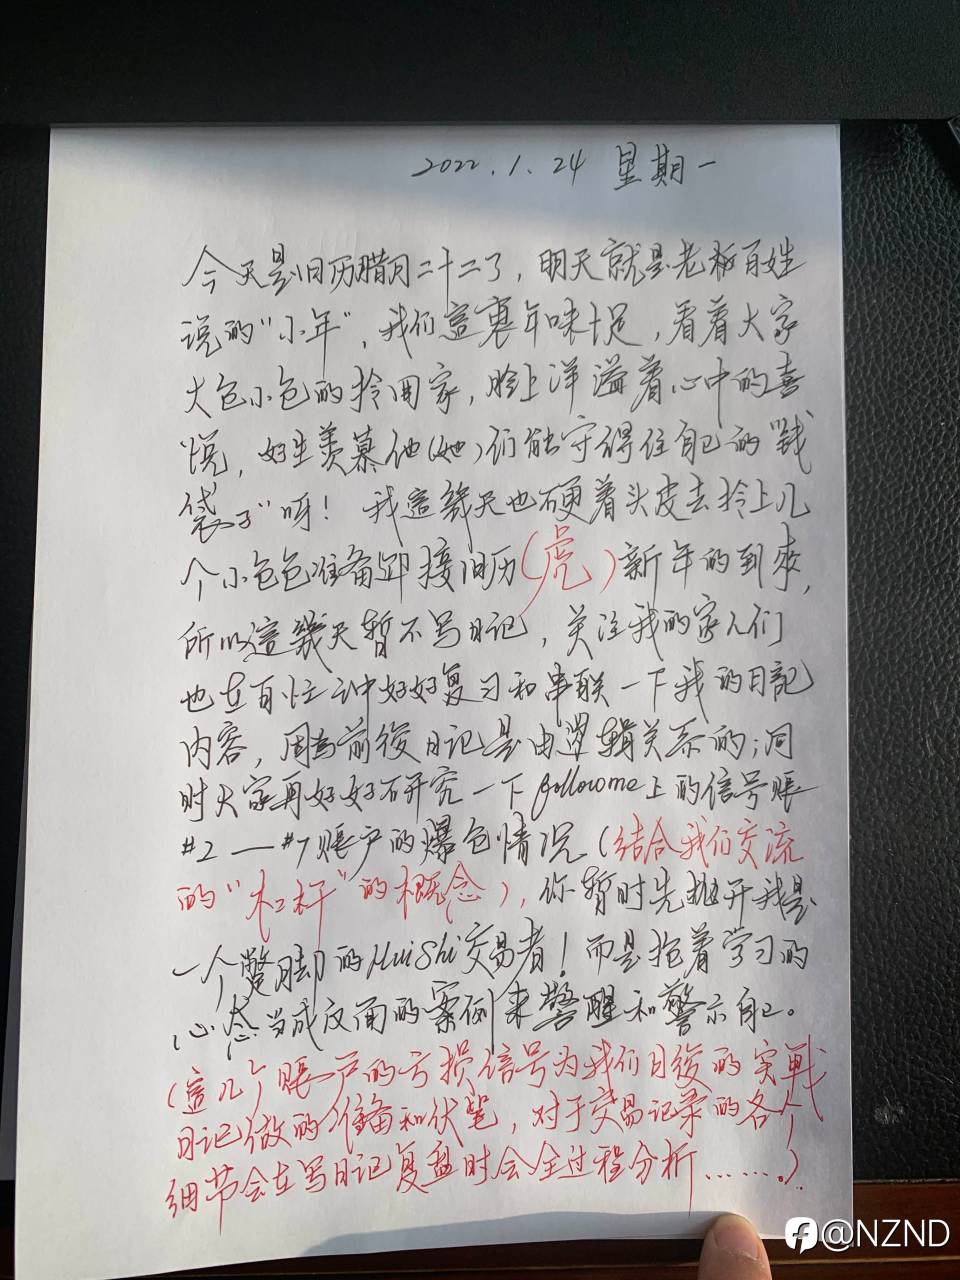 2022.1.24 星期一
今天是旧历腊月二十二了，明天就是老板百姓
说的"小年"，我们這裏年味十足，看着大家
大包小包的拎回家，脸上洋溢着心中的喜
悦，好生羡慕他(她)们能守得住自己的"钱
袋子"呀！我這幾天也硬着头皮去拎上几
个小包包准备迎接旧历(虎)新年的到來，
所以這幾天暂不写日记，关注我的家人们
也在百忙之中好好复习和串联一下我的日記
内容，因為前後日记是由逻辑关系的；同
时大家再好好研究一下followme上的信号账
#2—#7账户的爆仓情况(结合我们交流
的"杠杆"的概念)，你暂时先抛开我是
一个蹩脚的HuiShi交易者！而是抱着学习的
心态当成反面的案例来警醒和警示自己。
(這几个账户的亏损信号为我们日後的实戰
日记做的准备和伏笔，对于交易记录的各个
细节会在写日记复盘时会全过程分析.......)
@NZND